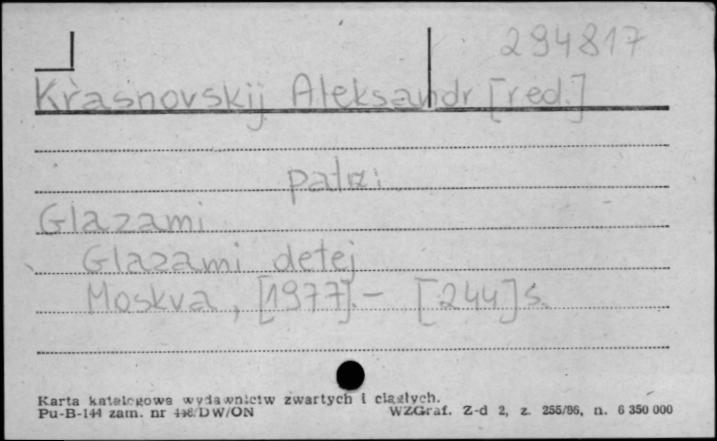 294817
Krasnovskij Aleksandr [red.]
patrz:
Glazami
Glazami detej
Moskva, [1977].- [244] s.
Karta katalogowa wydawnictw zwartych i ciągłych.
Pu-B-144 zam. nr 448/DW/ON WZGraf. Z-d 2, z. 255/86, n. 6 350 000